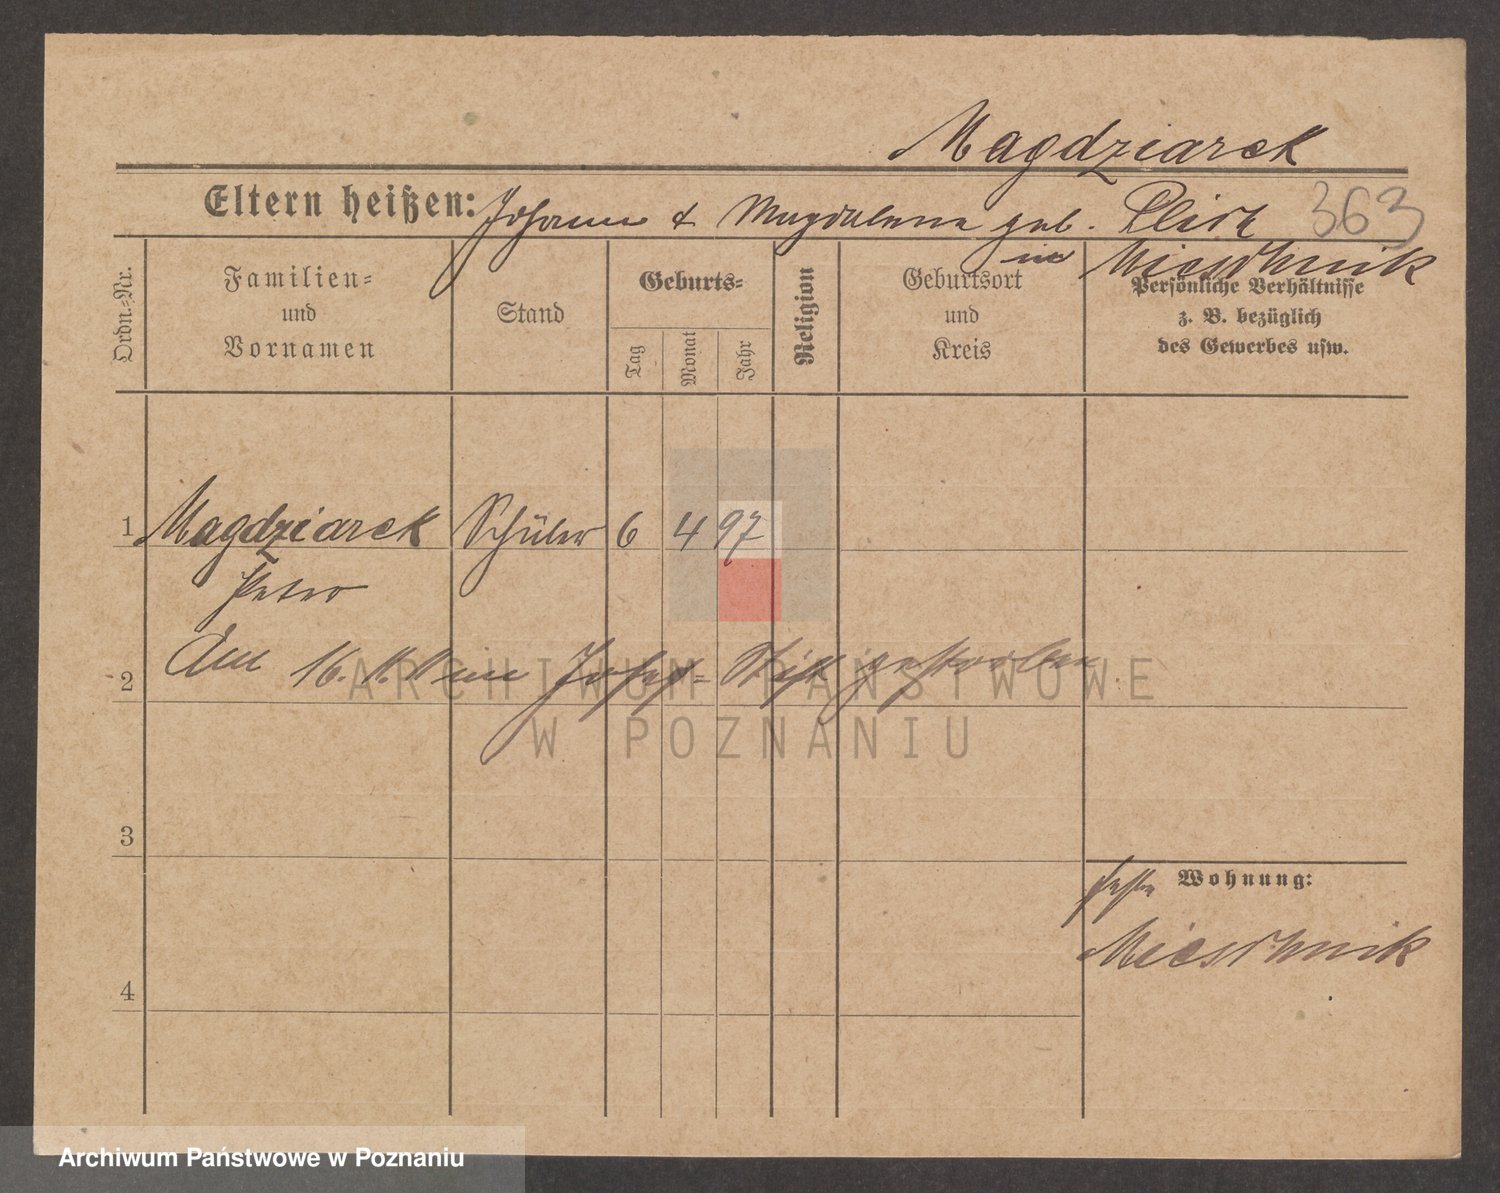 Magdziarek
Eltern heißen: Johann & Magdalena geb. 363
in Mieschnik
Ordn.-Nr.
Familien-
und
Vornamen
Stand
Geburts-
Tag
Monat
Jahr
Religion
Geburtsort
und
Kreis
Persönliche Verhältnisse
z. B. bezüglich
des Gewerbes usw.
1 Magdziarek Schüler 6 4 97
Peter
2 Am 16. im Josef-Stift gestorben
3
4
Wohnung:
Mieschnik
ARCHIWUM PAŃSTWOWE
W POZNANIU
Archiwum Państwowe w Poznaniu